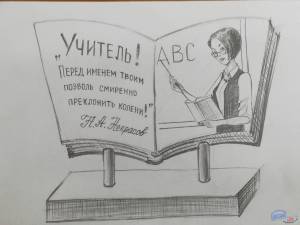 „Учитель!
Перед именем твоим
позволь смиренно
преклонить колени!"
Н.А. Некрасов
ABC